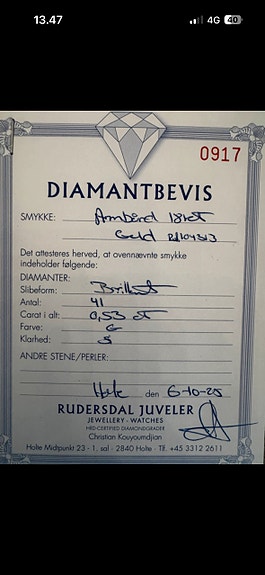 13.47
4G 40
0917
DIAMANTBEVIS
SMYKKE: Armbånd 18 kt
Guld
Det attesteres herved, at ovennævnte smykke
indeholder følgende:
DIAMANTER:
Slibeform: Brillant
Antal: 41
Carat i alt: 0,53 ct
Farve: G
Klarhed: S
ANDRE STENE/PERLER:
Holte den 6-10-25
RUDERSDAL JUVELER
JEWELLERY - WATCHES
HRD-CERTIFIED DIAMONDGRADER
Christian Kouyoumdjian
Holte Midtpunkt 23 - 1. sal - 2840 Holte - Tlf. +45 3312 2611